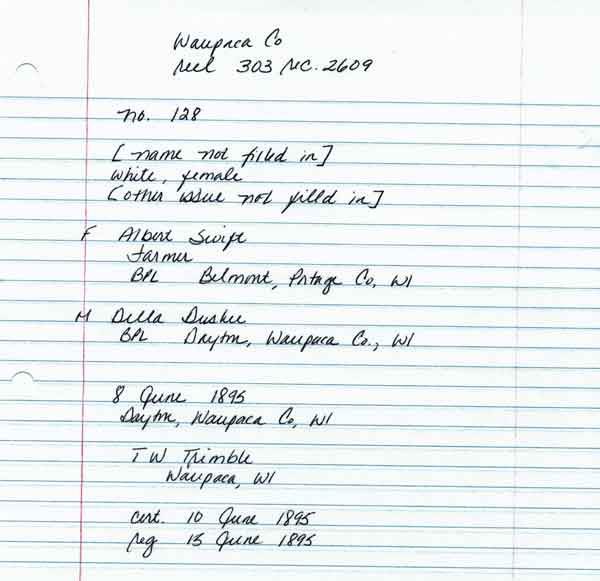 Waupaca Co
reel 303 rec. 2609
no. 128
[name not filled in]
white, female
[other issue not filled in]
F Albert Swift
Farmer
BPL Belmont, Portage Co, WI
M Della Duskee
BPL Dayton, Waupaca Co., WI
8 June 1895
Dayton, Waupaca Co, WI
T W Trimble
Waupaca, WI
cert. 10 June 1895
reg 15 June 1895